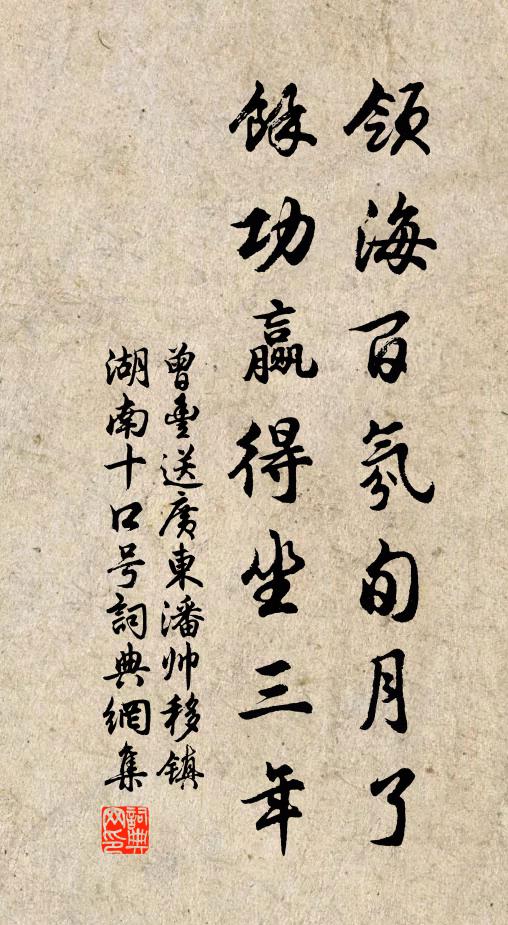 领海百氛旬月了
餘功赢得坐三年
曾豐送廣東潘帅移镇
湖南十口号詞典網集
詞典网印